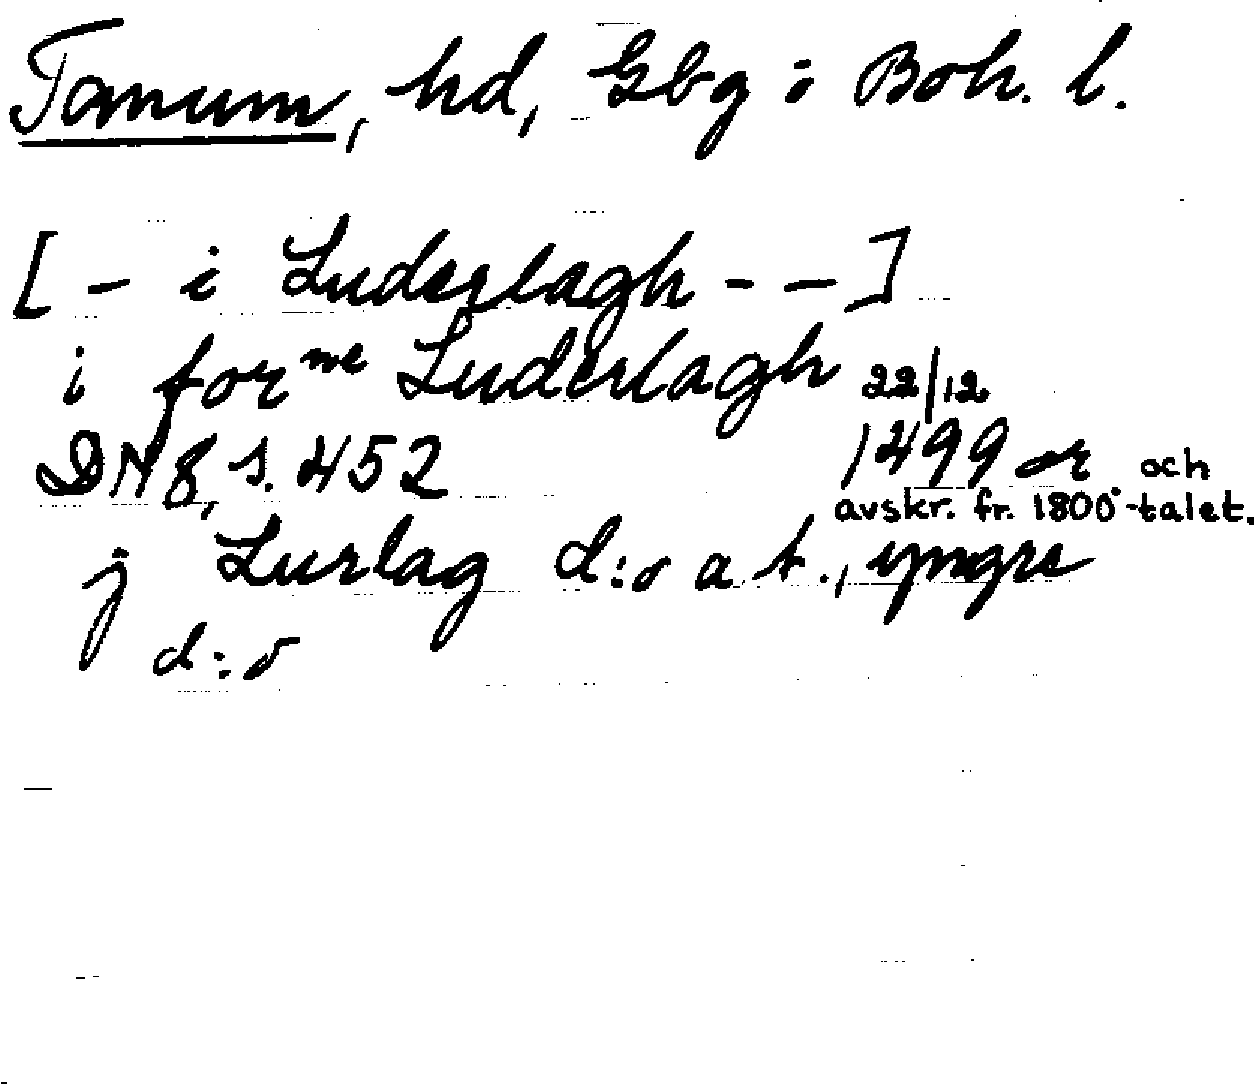 Tanum, hd, Gbg i Boh. l.
[ - i Luderlagh - - ]
i for ne Luderlagh 22/12
DN 8, s. 452 1499 or och
avskr. fr. 1800-talet.
j Lurlag d:o a t., yngre
d:o